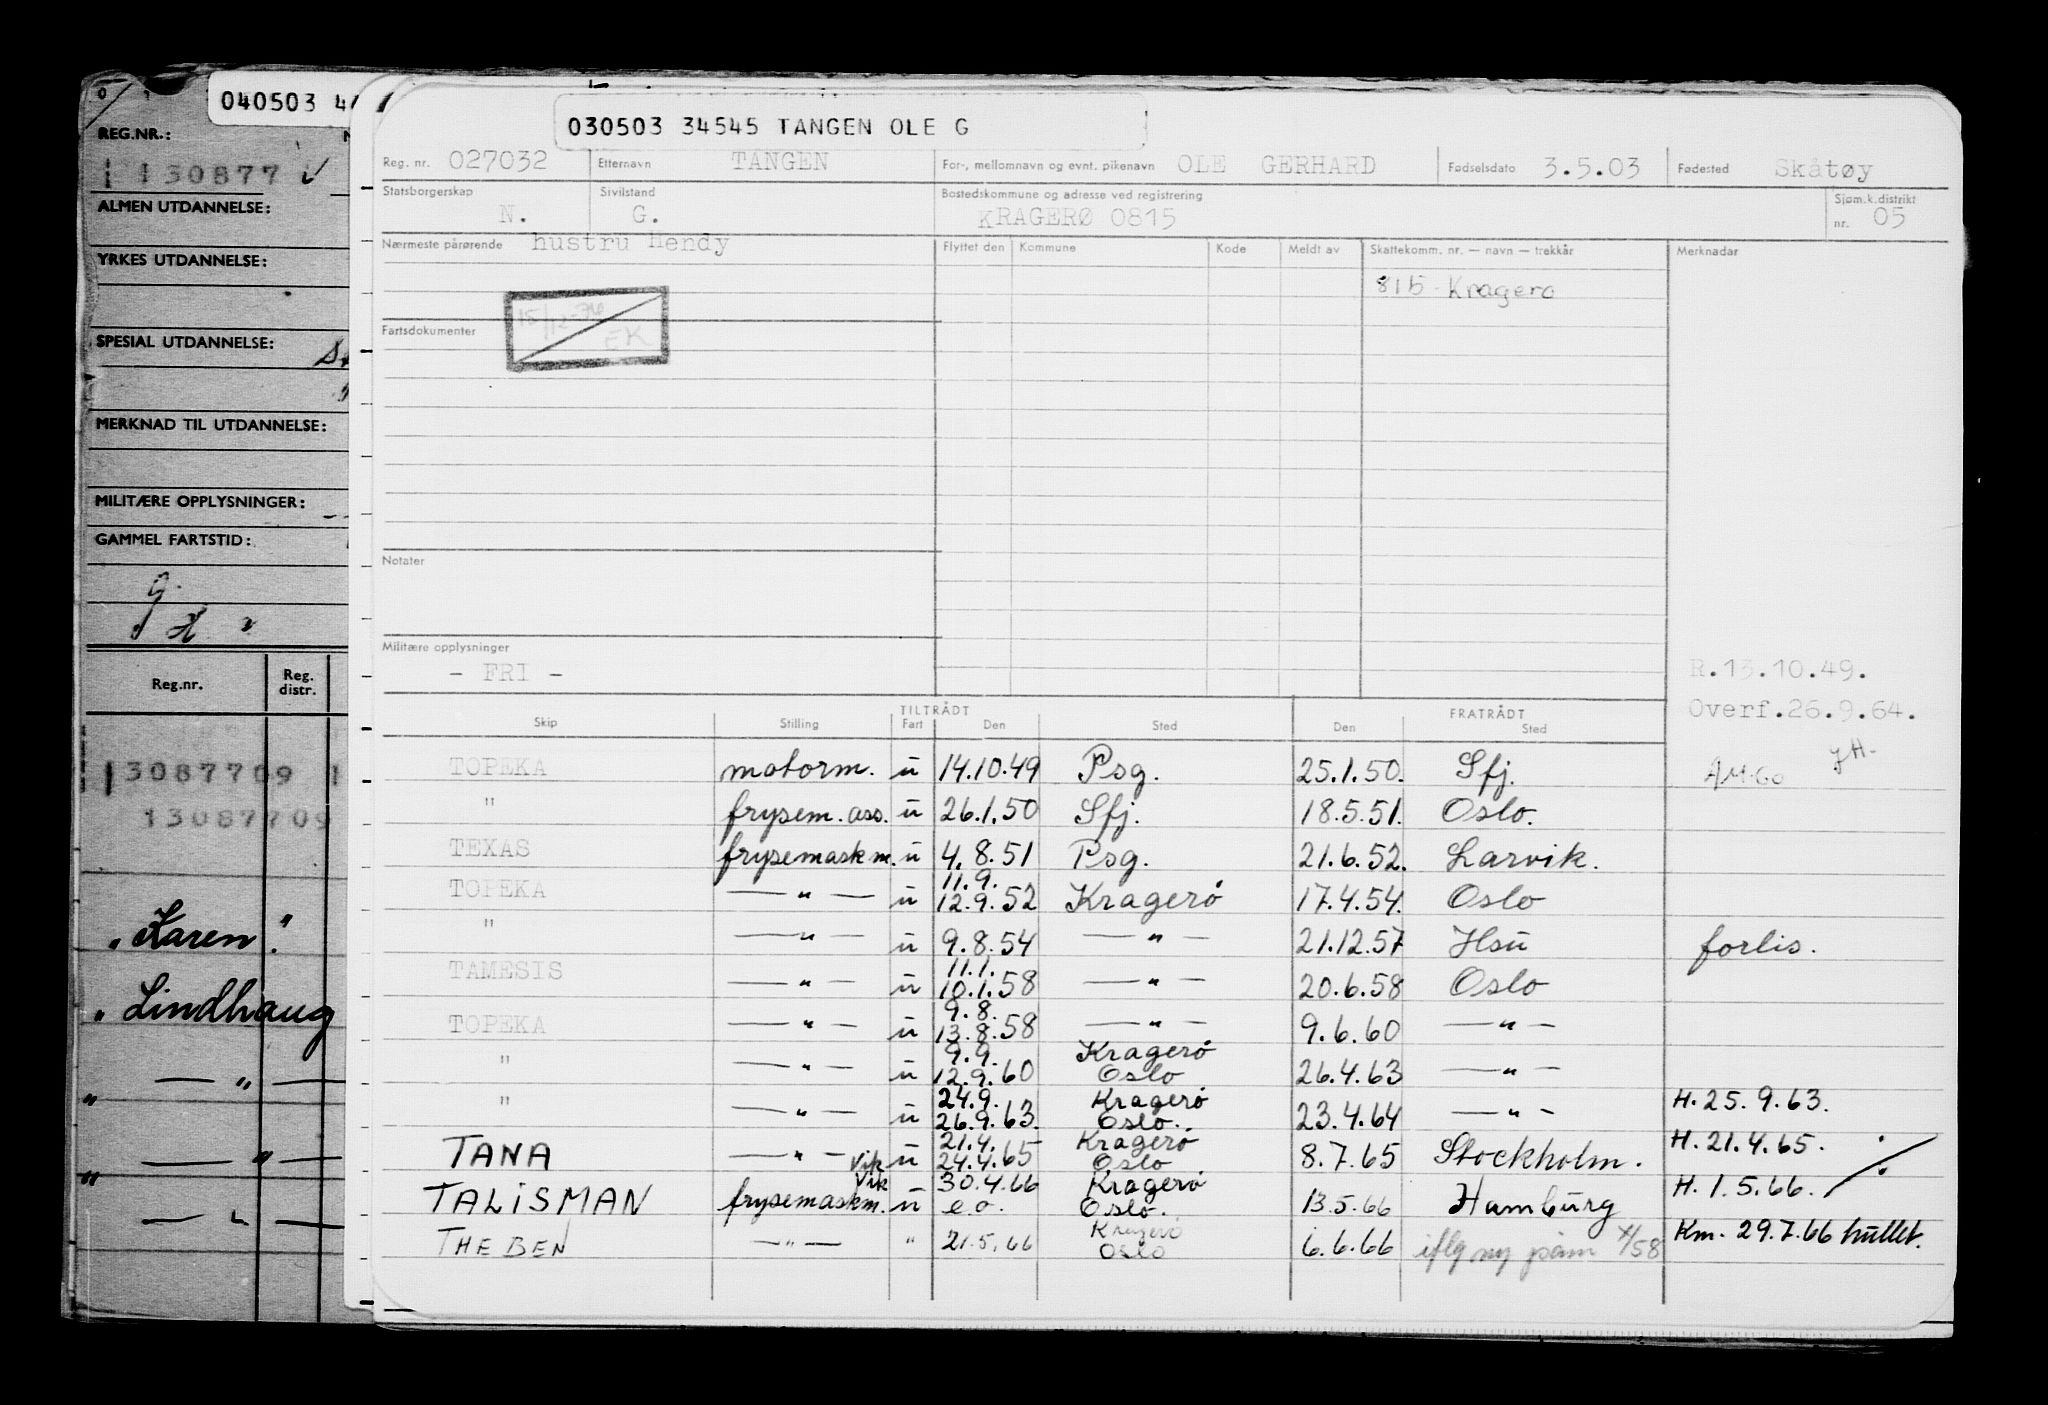 040503 4
REG.NR.:
130877
ALMEN UTDANNELSE:
YRKES UTDANNELSE:
SPESIAL UTDANNELSE:
MERKNAD TIL UTDANNELSE:
MILITÆRE OPPLYSNINGER:
GAMMEL FARTSTID:
Reg.nr. Reg. distr.
13087709 1
13087709
"Karen"
"Lindhaug
" — " —
" — " —
— " —
030503 34545 TANGEN OLE G
Reg. nr. 027032 Etternavn TANGEN For-, mellomnavn og evnt. pikenavn OLE GERHARD Fødselsdato 3.5.03 Fødested Skåtøy
Statsborgerskap N. Sivilstand G. Bostedskommune og adresse ved registrering KRAGERØ 0815 Sjøm.k.distrikt nr. 05
Nærmeste pårørende hustru Hendy Flyttet den Kommune Kode Meldt av Skattekomm. nr. — navn — trekkår Merknadar
815 Kragerø
Fartsdokumenter
15/12-76 EK
Notater
Militære opplysninger
- FRI -
R.13.10.49.
Overf.26.9.64.
Skip Stilling TILTRÅDT Fart Den Sted FRATRÅDT Den Sted
TOPEKA motorm. u 14.10.49 Psg. 25.1.50. Sfj.
" frysem. ass. u 26.1.50 Sfj. 18.5.51. Oslo.
TEXAS frysemaskm. u 4.8.51 Psg. 21.6.52. Larvik.
11.9.
TOPEKA — " — u 12.9.52 Kragerø 17.4.54. Oslo
" — " — u 9.8.54 — " — 21.12.57 Hsu forlis.
11.1.
TAMESIS — " — u 10.1.58 — " — 20.6.58 Oslo
9.8.
TOPEKA — " — u 13.8.58 — " — 9.6.60 — " —
9.9. Kragerø
" — " — u 12.9.60 Oslo 26.4.63 — " —
24.9. Kragerø H. 25.9.63.
" — " — u 26.9.63. Oslo. 23.4.64 — " —
21.4. Kragerø H. 21.4.65.
TANA — " — Vik u 24.4.65 Oslo 8.7.65 Stockholm.
Vik 30.4.66 Kragerø H. 1.5.66.
TALISMAN frysemaskm. u e.o. Oslo. 13.5.66 Hamburg
Kragerø Km. 29.7.66 hullet.
THEBEN — " — " 21.5.66 Oslo 6.6.66 iflg ny